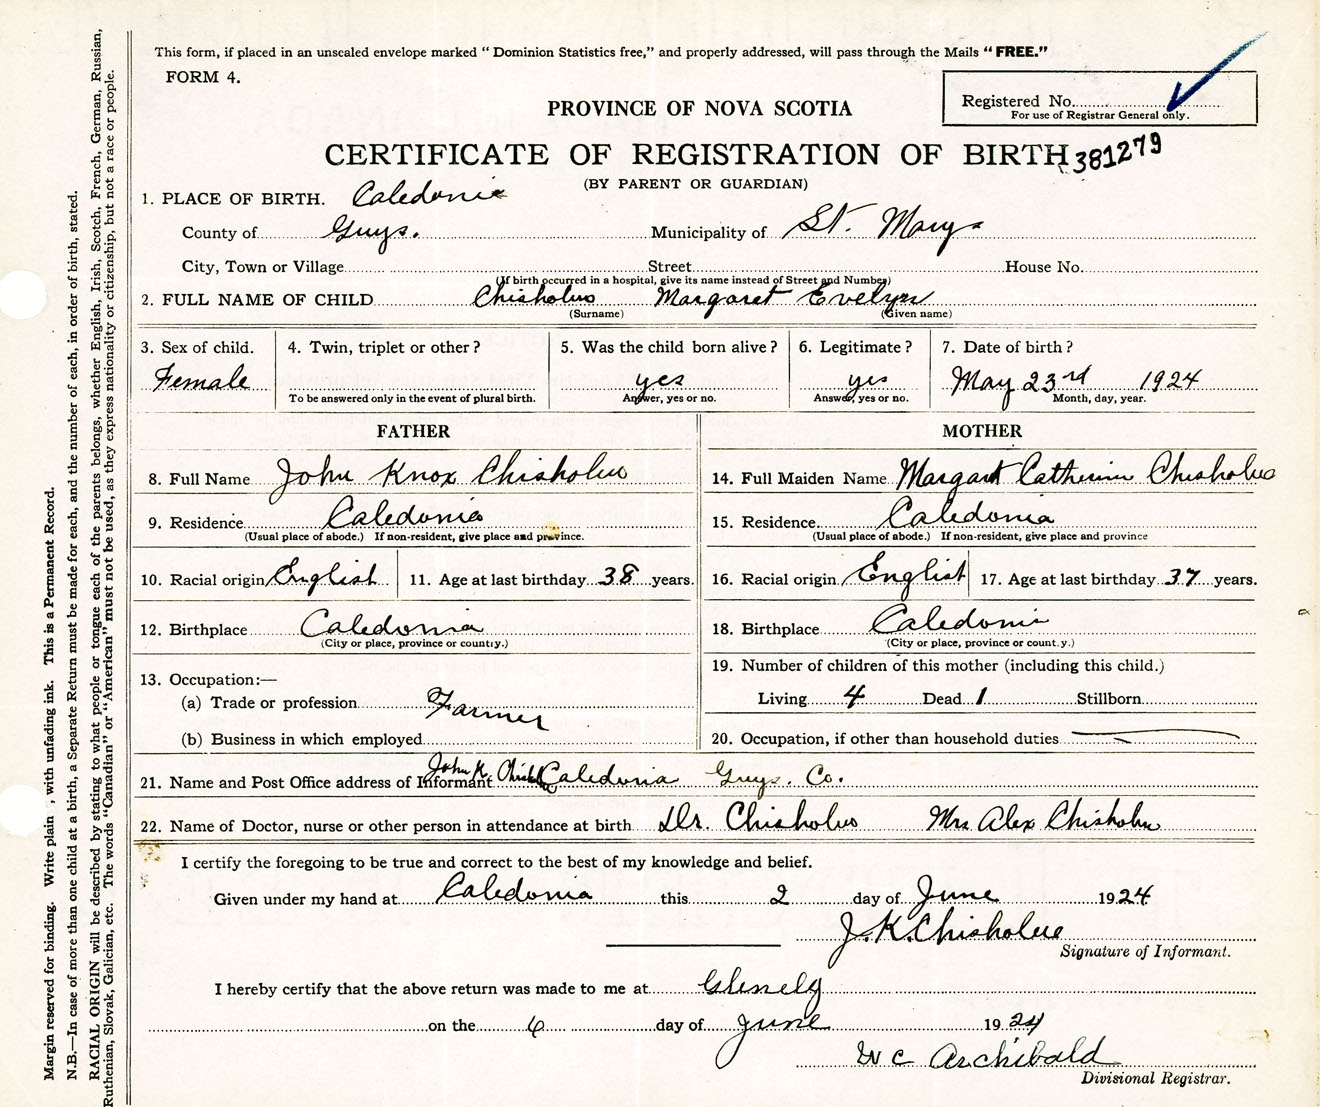 This form, if placed in an unscaled envelope marked " Dominion Statistics free," and properly addressed, will pass through the Mails "FREE."
FORM 4.
Registered No.
For use of Registrar General only.
PROVINCE OF NOVA SCOTIA
CERTIFICATE OF REGISTRATION OF BIRTH 381279
(BY PARENT OR GUARDIAN)
1. PLACE OF BIRTH. Caledonia
County of Guys. Municipality of St. Marys
City, Town or Village Street House No.
(If birth occurred in a hospital, give its name instead of Street and Number)
2. FULL NAME OF CHILD Chisholm Margaret Evelyn
(Surname) (Given name)
3. Sex of child. 4. Twin, triplet or other? 5. Was the child born alive? 6. Legitimate? 7. Date of birth?
Female yes yes May 23rd 1924
To be answered only in the event of plural birth. Answer, yes or no. Answer, yes or no. Month, day, year.
FATHER MOTHER
8. Full Name John Knox Chisholm 14. Full Maiden Name Margaret Catherine Chisholm
9. Residence Caledonia 15. Residence. Caledonia
(Usual place of abode.) If non-resident, give place and province. (Usual place of abode.) If non-resident, give place and province
10. Racial origin English 11. Age at last birthday 38 years. 16. Racial origin English 17. Age at last birthday 37 years.
12. Birthplace Caledonia 18. Birthplace Caledonia
(City or place, province or country.) (City or place, province or count.y.)
19. Number of children of this mother (including this child.)
13. Occupation:—
(a) Trade or profession Farmer Living 4 Dead 1 Stillborn
(b) Business in which employed 20. Occupation, if other than household duties
21. Name and Post Office address of Informant John K. Caledonia Guys. Co.
22. Name of Doctor, nurse or other person in attendance at birth Dr. Chisholm Mrs Alex Chisholm
I certify the foregoing to be true and correct to the best of my knowledge and belief.
Given under my hand at Caledonia this 2 day of June 1924
J. K. Chisholm
Signature of Informant.
I hereby certify that the above return was made to me at Glenelg
on the 6 day of June 1924
W C Archibald
Divisional Registrar.
Margin reserved for binding. Write plain , with unfading ink. This is a Permanent Record.
N.B.—In case of more than one child at a birth, a Separate Return must be made for each, and the number of each, in order of birth, stated.
RACIAL ORIGIN will be described by stating to what people or tongue each of the parents belongs, whether English, Irish, Scotch, French, German, Russian,
Ruthenian, Slovak, Galician, etc. The words "Canadian" or "American" must not be used, as they express nationality or citizenship, but not a race or people.